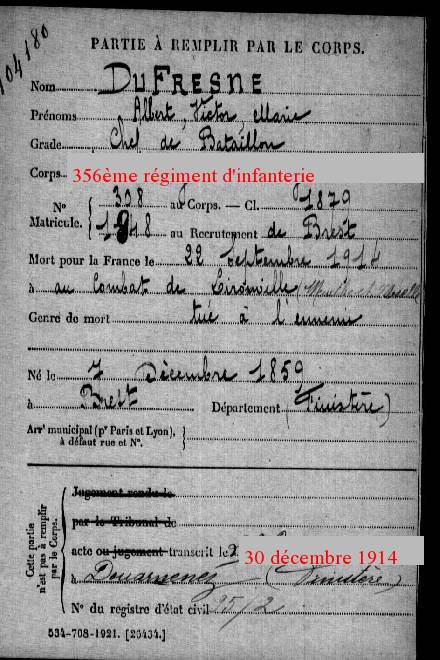 104180
PARTIE À REMPLIR PAR LE CORPS.
Nom DUFRESNE
Prénoms Albert, Victor, Marie
Grade Chef de Bataillon
Corps 356ème régiment d'infanterie
N° 308 au Corps. — Cl. 1879
Matricule. 1948 au Recrutement de Brest
Mort pour la France le 22 Septembre 1914
à au Combat de Lironville (Meurthe et Moselle
Genre de mort tué à l'ennemi
Né le 7 Décembre 1859
à Brest Département (Finistère)
Arrt municipal (pr Paris et Lyon),
à défaut rue et N°.
Cette partie
n'est pas à remplir
par le Corps.
Jugement rendu le
par le Tribunal de
acte ou jugement transcrit le 30 décembre 1914
à Douarnenez (Finistère)
N° du registre d'état civil
534-708-1921. [26434.]